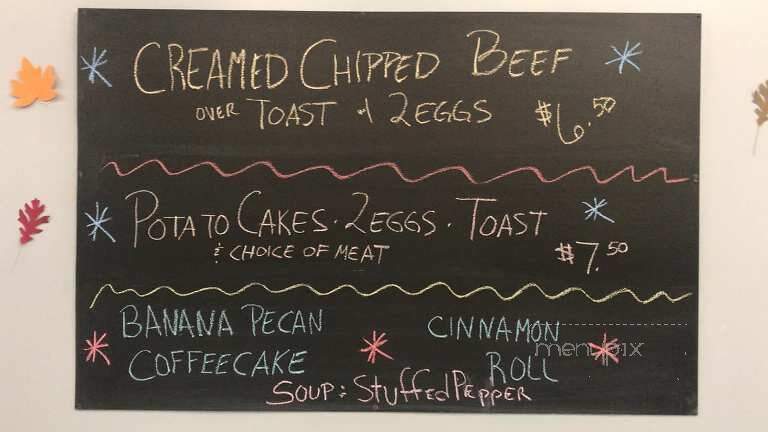 CREAMED CHIPPED BEEF
OVER TOAST & 2 EGGS $6.50
POTATO CAKES · 2 EGGS · TOAST
& CHOICE OF MEAT $7.50
BANANA PECAN
COFFEECAKE
CINNAMON
ROLL
SOUP: Stuffed Pepper
menupix